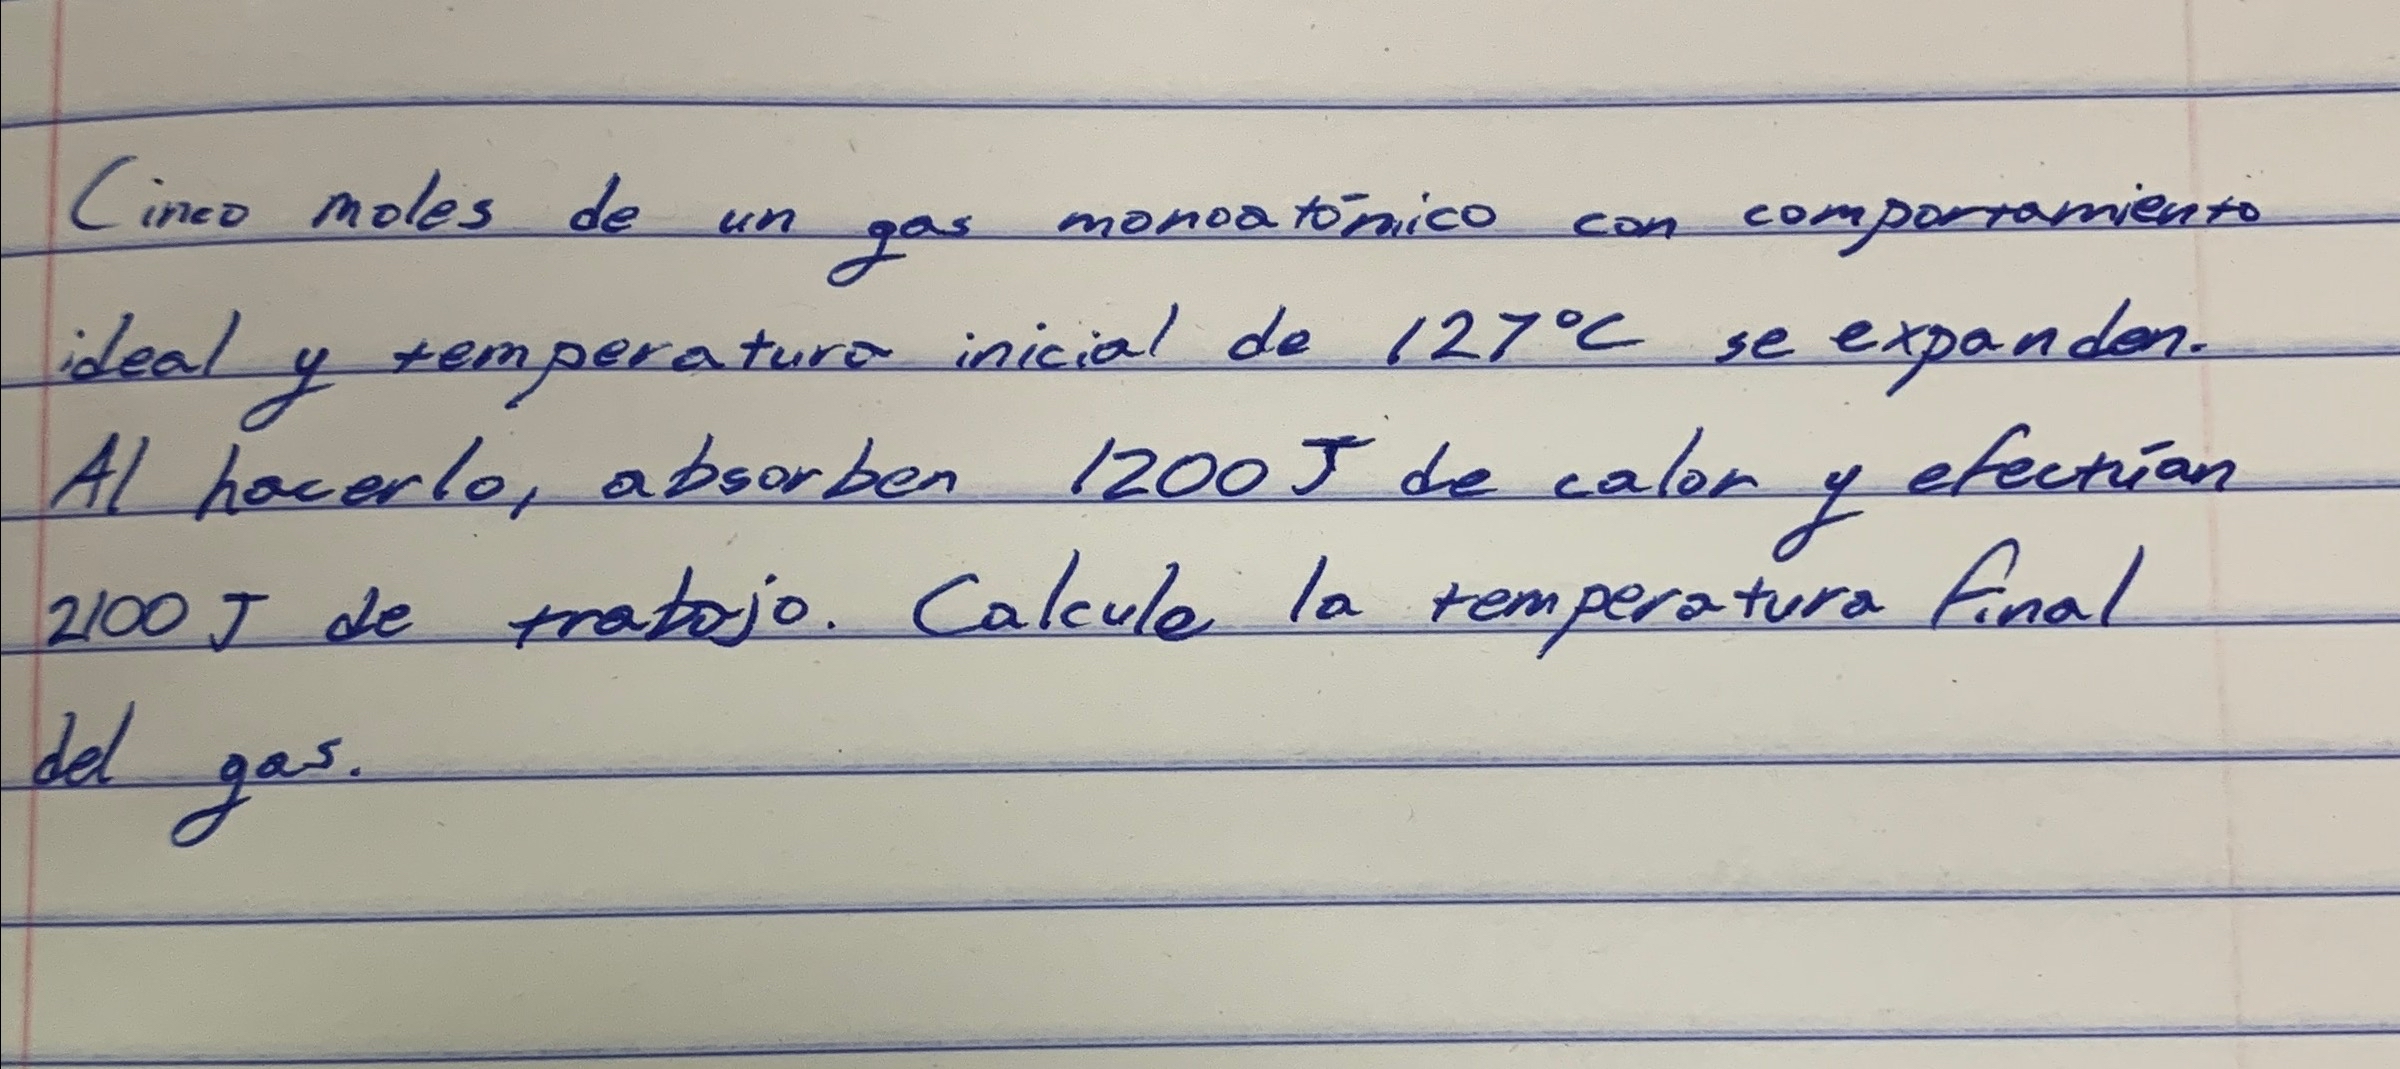 Cinco moles de un gas monoatómico con comportamiento
ideal y temperatura inicial de 127°C se expanden.
Al hacerlo, absorben 1200 J de calor y efectúan
2100 J de trabajo. Calcule la temperatura final
del gas.